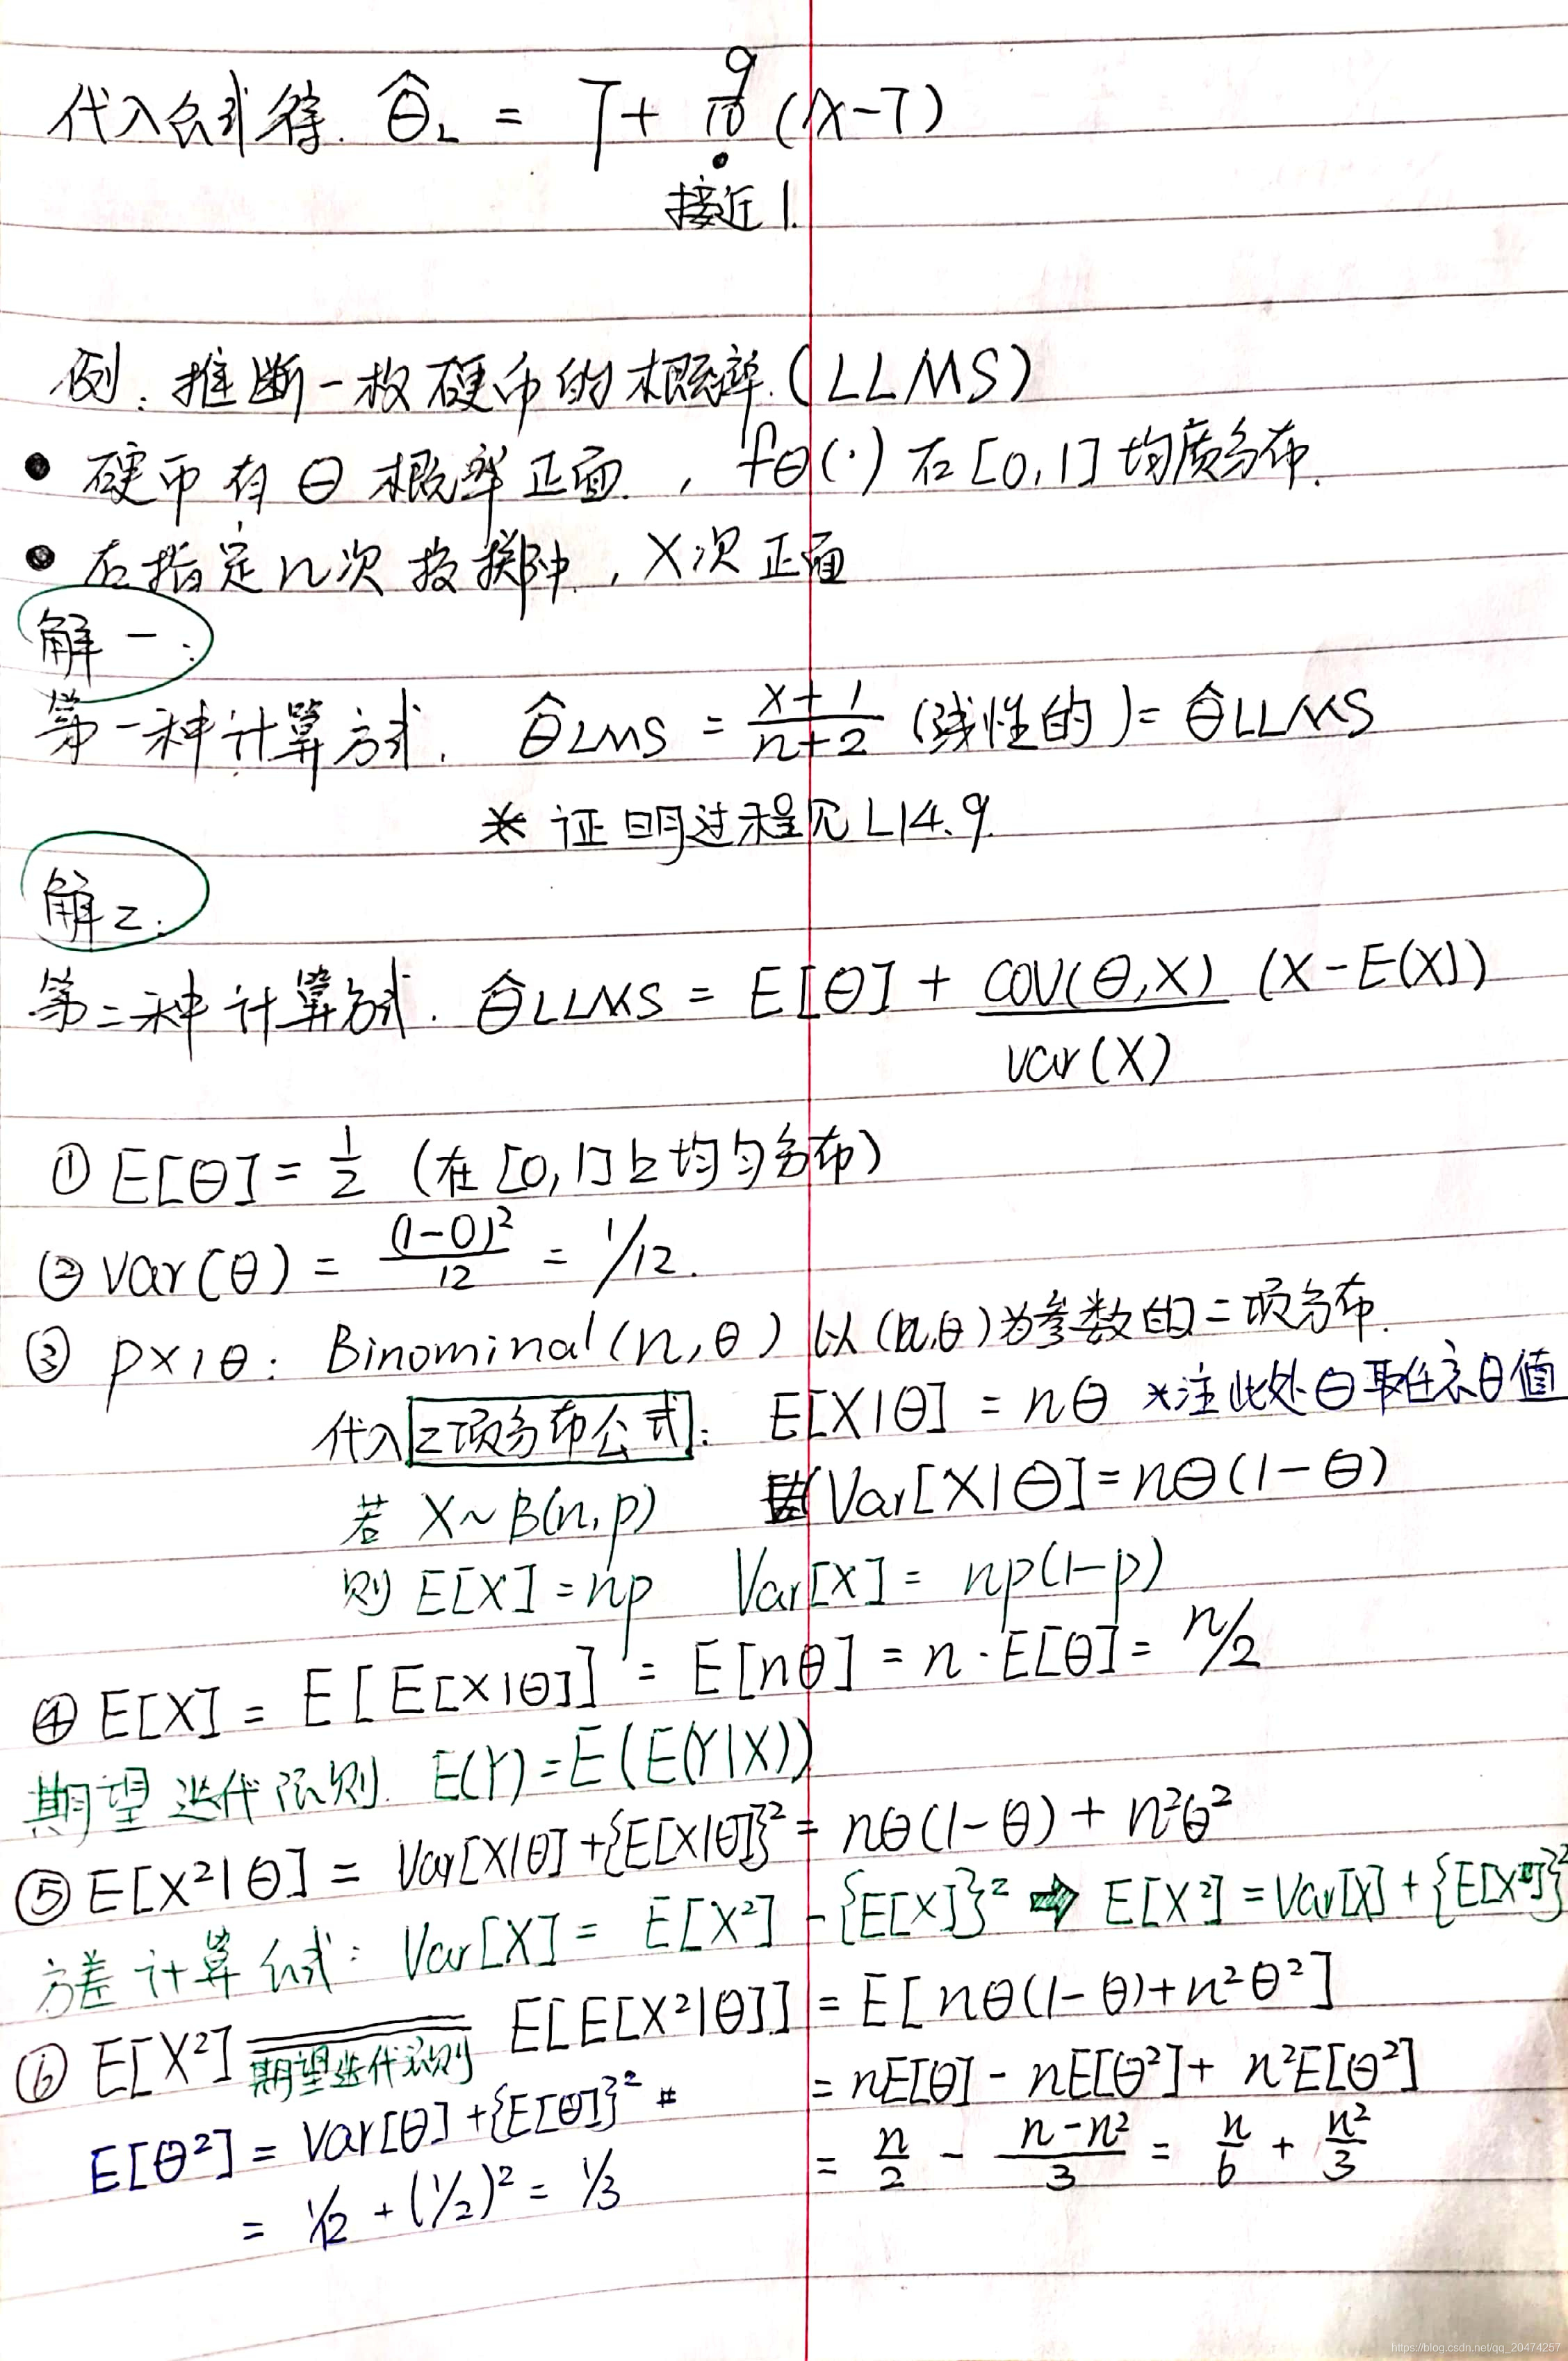 代入公式得. Θ̂L = 7 + 9/10 (X-7)
接近1.
例: 推断一枚硬币的概率.(LLMS)
● 硬币有Θ概率正面. , fΘ(·) 在[0,1]均质分布.
● 在指定n次投掷中, X次正面
解一:
第一种计算方式. Θ̂LMS = X+1/n+2 (线性的)= Θ̂LLMS
* 证明过程见L14.9.
解二:
第二种计算方式. Θ̂LLMS = E[Θ] + COV(Θ,X)/Var(X) (X-E(X])
① E[Θ] = 1/2 (在[0,1]上均匀分布)
② Var(Θ) = (1-0)²/12 = 1/12.
③ PX|Θ: Binominal(n,θ) 以(n,θ)为参数的二项分布.
代入 二项分布公式: E[X|Θ] = nΘ *注此处Θ取任意θ值
若 X~B(n,p) Var[X|Θ]=nΘ(1-Θ)
则 E[X]=np Var[X]= np(1-p)
④ E[X] = E[E[X|Θ]] = E[nΘ] = n·E[Θ] = n/2
期望迭代法则. E(Y)=E(E(Y|X))
⑤ E[X²|Θ] = Var[X|Θ]+{E[X|Θ]}² = nΘ(1-Θ) + n²Θ²
方差计算公式: Var[X] = E[X²] - {E[X]}² ➡ E[X²] = Var[X] + {E[X]}²
⑥ E[X²] = 期望迭代法则 E[E[X²|Θ]] = E[nΘ(1-Θ)+n²Θ²]
= nE[Θ] - nE[Θ²] + n²E[Θ²]
E[Θ²] = Var[Θ]+{E[Θ]}²
= n/2 - n-n²/3 = n/6 + n²/3
= 1/12 + (1/2)² = 1/3
https://blog.csdn.net/qq_20474257